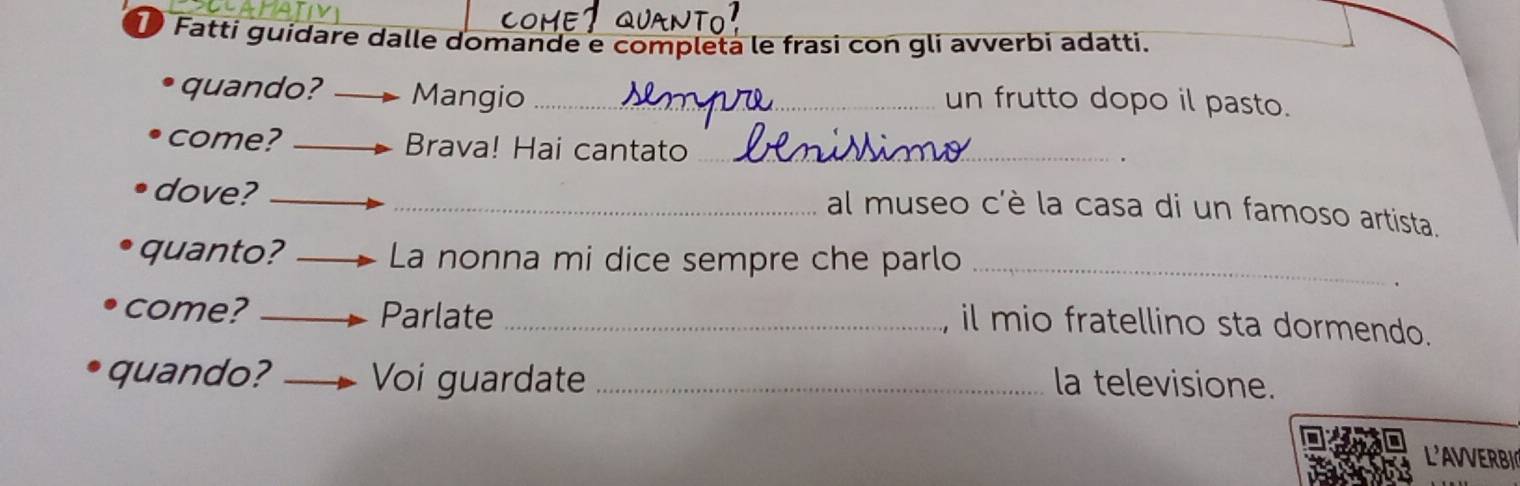 ESCLAMATIVI
COME? QUANTO?
1 Fatti guidare dalle domande e completa le frasi con gli avverbi adatti.
• quando? → Mangio sempre un frutto dopo il pasto.
• come? → Brava! Hai cantato benissimo.
• dove? → al museo c'è la casa di un famoso artista.
• quanto? → La nonna mi dice sempre che parlo .
• come? → Parlate , il mio fratellino sta dormendo.
• quando? → Voi guardate la televisione.
L'AVVERBIO